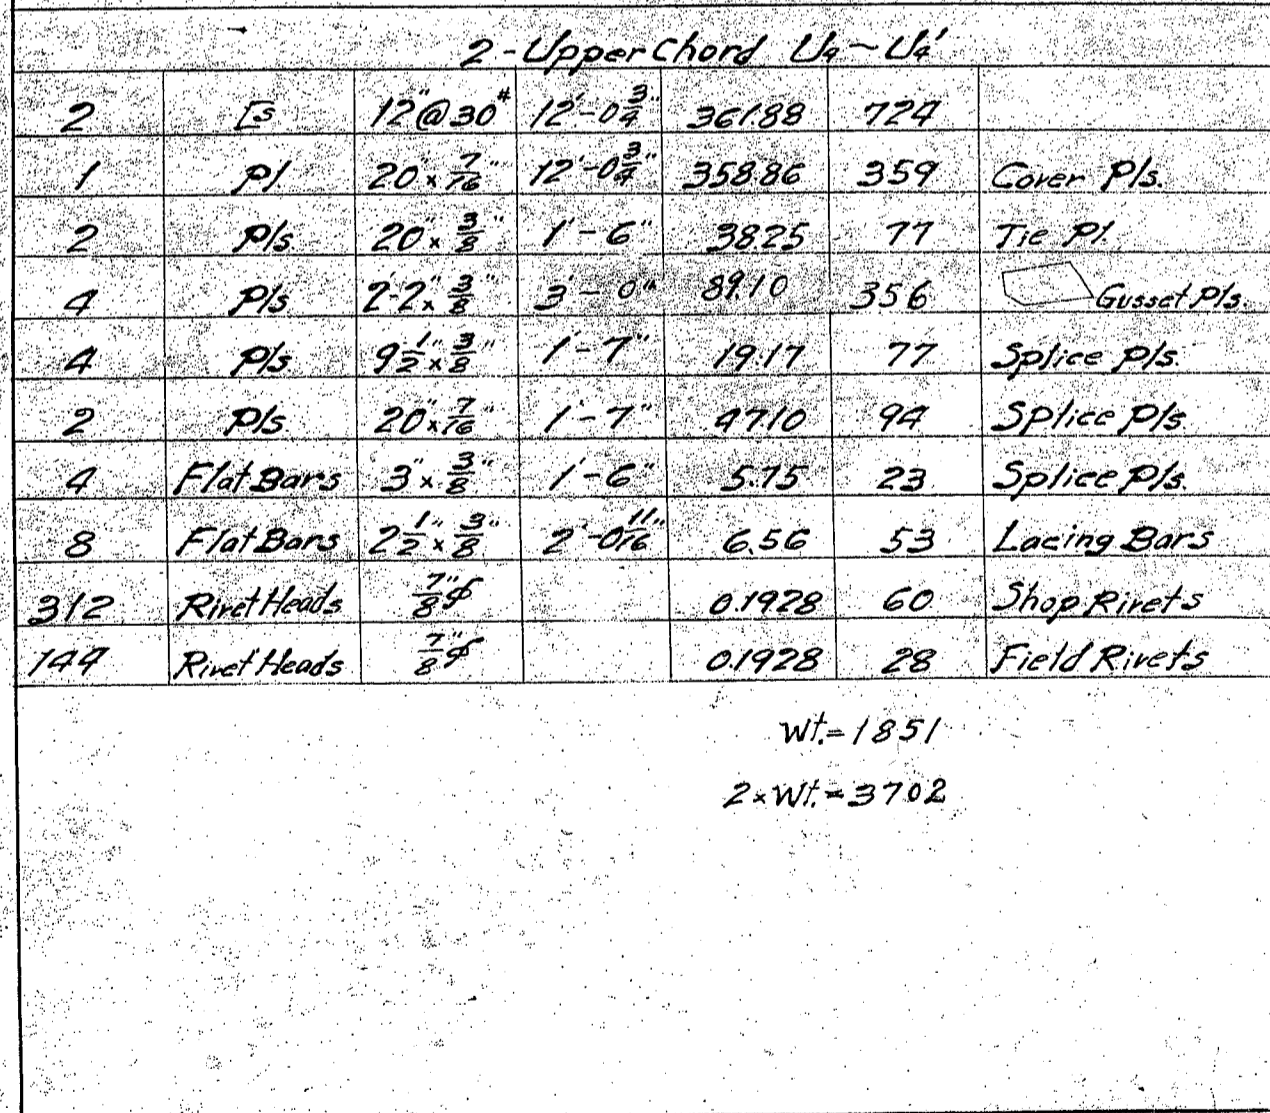 2-Upper Chord U4~U4'
2 [s 12"@30# 12'-0 3/4" 361.88 724
1 Pl 20"x 7/16" 12'-0 3/4" 358.86 359 Cover Pls.
2 Pls. 20"x 3/8" 1'-6" 38.25 77 Tie Pl.
4 Pls 2'-2"x 3/8" 3'-0" 89.10 356 Gusset Pls.
4 Pls 9 1/2"x 3/8" 1'-7" 19.17 77 Splice Pls.
2 Pls 20"x 7/16" 1'-7" 47.10 94 Splice Pls
4 Flat Bars 3"x 3/8" 1'-6" 5.75 23 Splice Pls.
8 Flat Bars 2 1/2"x 3/8" 2'-0 11/16" 6.56 53 Lacing Bars
312 Rivet Heads 7/8"ø 0.1928 60 Shop Rivets
144 Rivet Heads 7/8"ø 0.1928 28 Field Rivets
Wt.=1851
2xWt.=3702